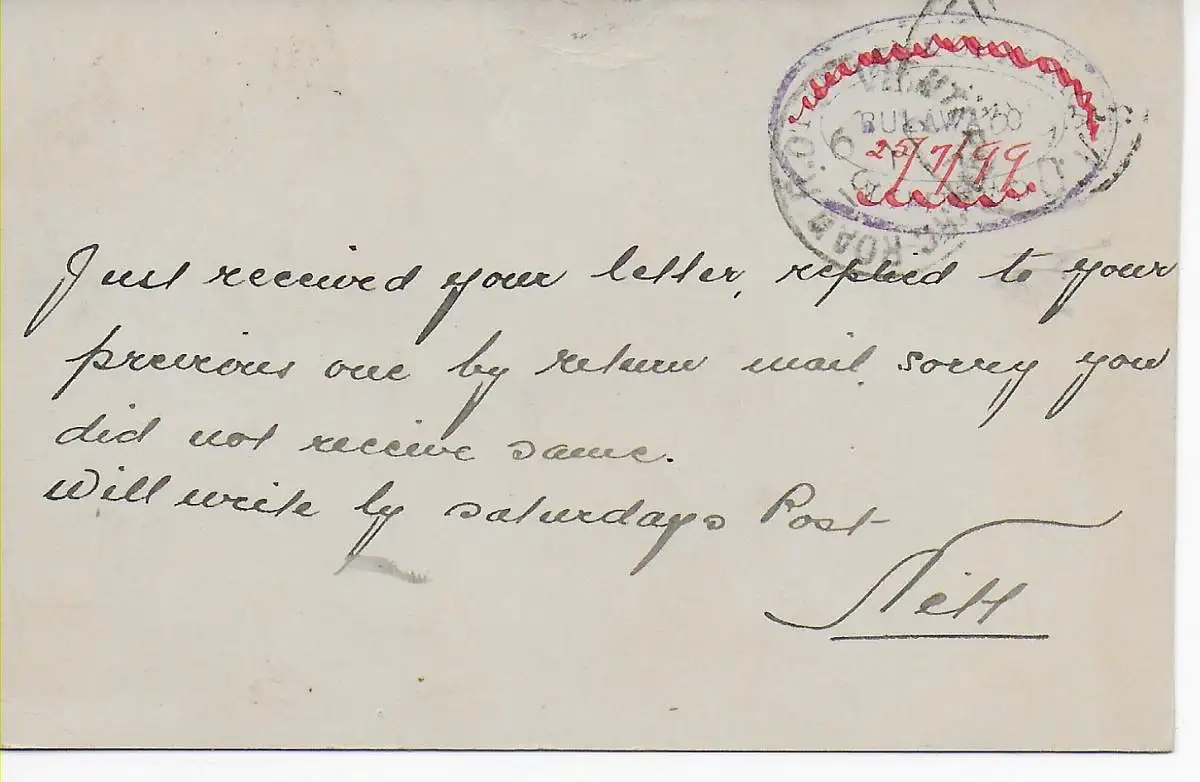 BULAWAYO
25/7/99
ROAD
Just received your letter, replied to your
previous one by return mail, sorry you
did not receive same.
Will write by saturdays Post